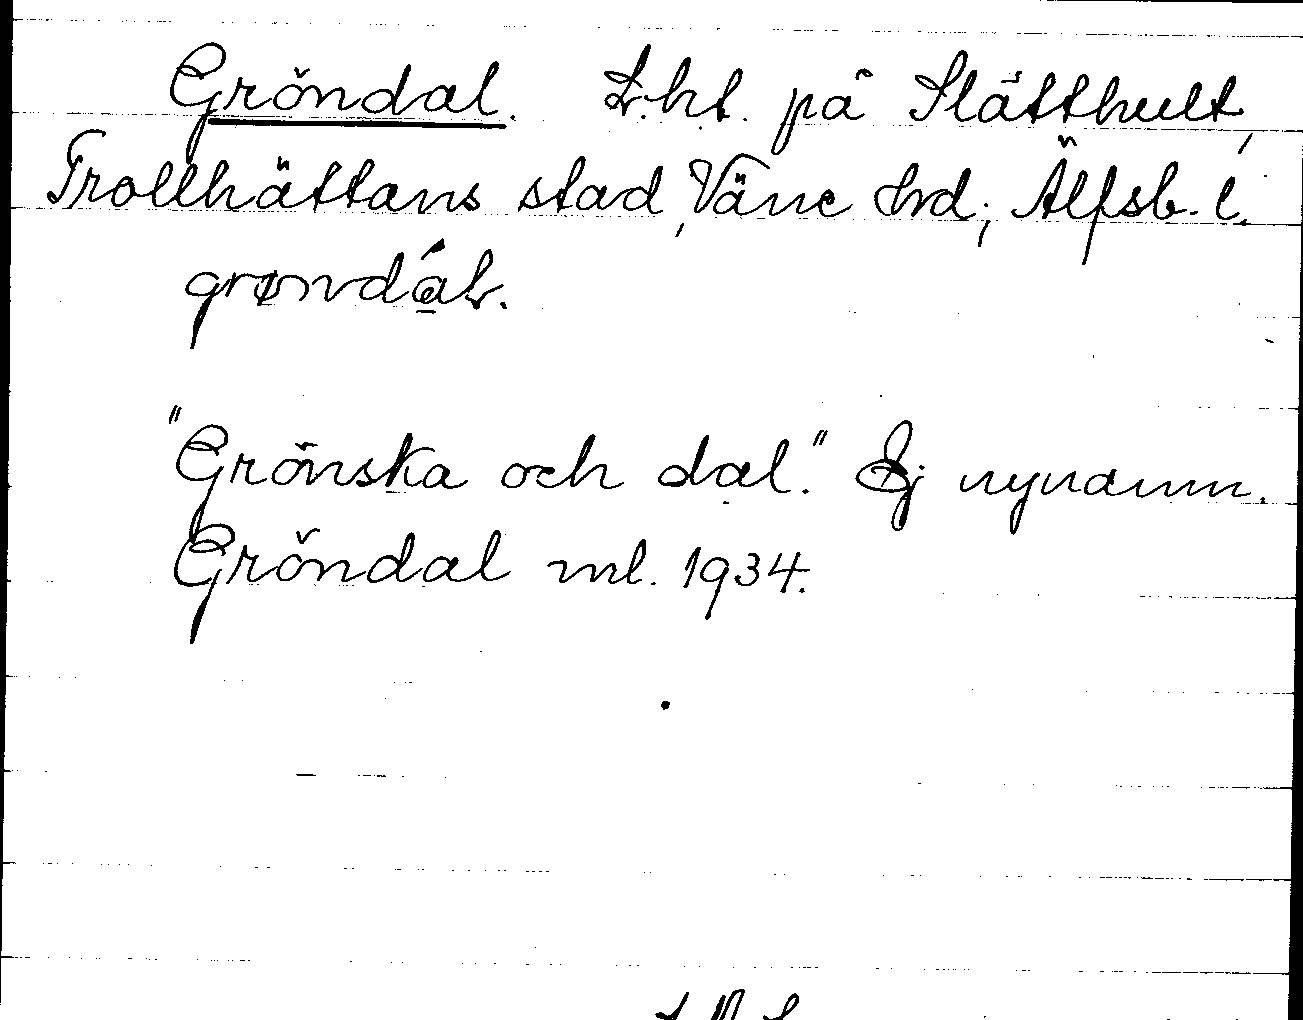 Gröndal. L.ht. på Slätthult,
Trollhättans stad, Väne hrd, Älfsb. l.
grøndál.
"Grönska och dal." Ej nynamn.
Gröndal ml. 1934.